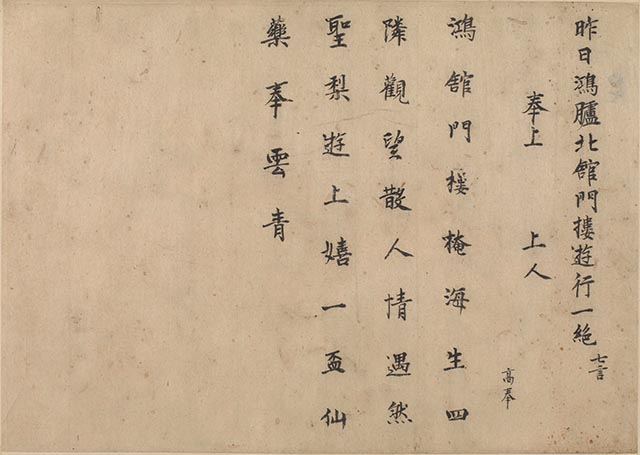 昨日鴻臚北館門樓遊行一絶 七言
奉上 上人
高奉
鴻館門樓掩海生四
隣觀望散人情遇然
聖梨遊上嬉一盃仙
藥奉雲青